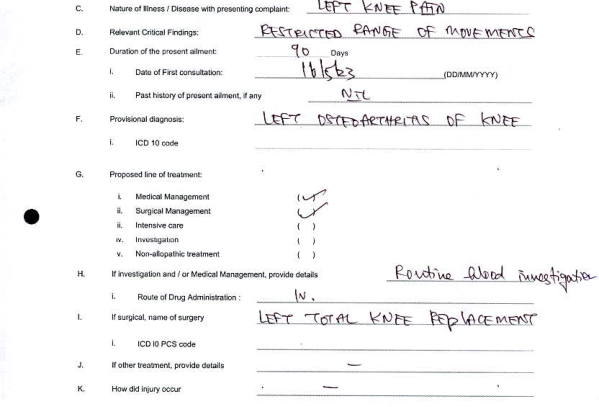 C. Nature of Illness / Disease with presenting complaint: LEFT KNEE PAIN
D. Relevant Critical Findings: RESTRICTED RANGE OF MOVEMENTS
E. Duration of the present ailment: 90 Days
i. Date of First consultation: 16/5/23 (DD/MM/YYYY)
ii. Past history of present ailment, if any NIL
F. Provisional diagnosis: LEFT OSTEOARTHRITIS OF KNEE
i. ICD 10 code
G. Proposed line of treatment:
i. Medical Management (✓)
ii. Surgical Management (✓)
ii. Intensive care ( )
iv. Investigation ( )
v. Non-allopathic treatment ( )
H. If investigation and / or Medical Management, provide details Routine blood investigation
i. Route of Drug Administration : IV.
I. If surgical, name of surgery LEFT TOTAL KNEE REPLACEMENT
i. ICD I0 PCS code
J. If other treatment, provide details –
K. How did injury occur –